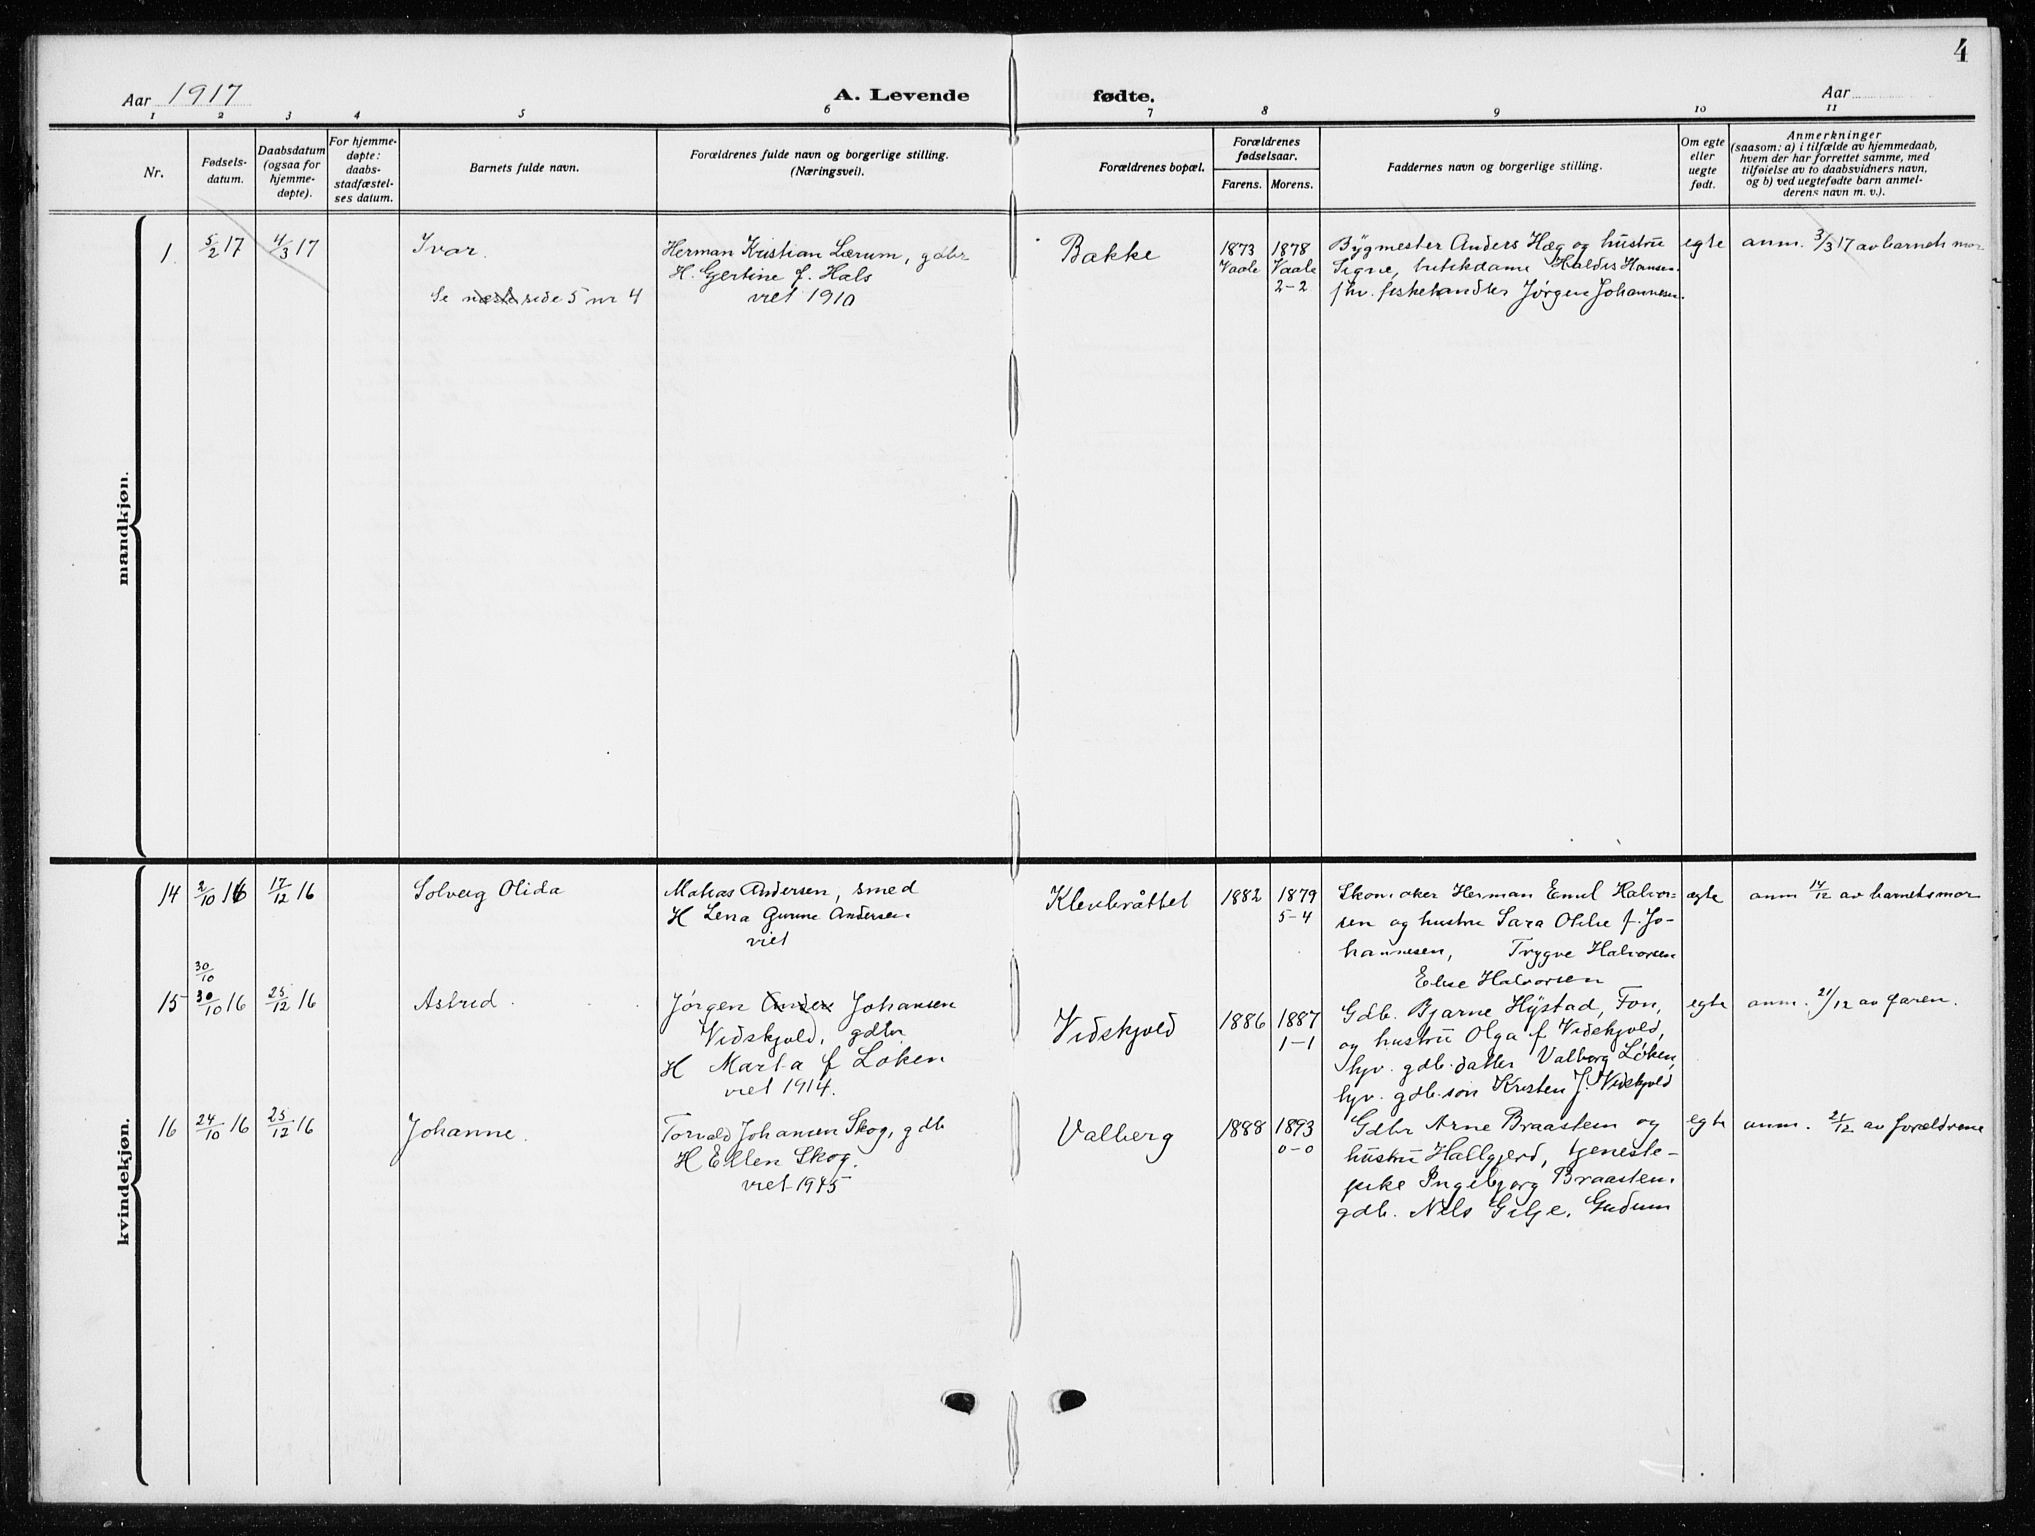 4
Aar 1917
A. Levende fødte.
Aar
1 2 3 4 5 6 7 8 9 10 11
Nr.
Fødsels-
datum.
Daabsdatum
(ogsaa for
hjemme-
døpte).
For hjemme-
døpte:
daabs-
stadfæstel-
ses datum.
Barnets fulde navn.
Forældrenes fulde navn og borgerlige stilling.
(Næringsvei).
Forældrenes bopæl.
Forældrenes
fødselsaar.
Farens. Morens.
Faddernes navn og borgerlige stilling.
Om egte
eller
uegte
født.
Anmerkninger
(saasom: a) i tilfælde av hjemmedaab,
hvem der har forrettet samme, med
tilføielse av to daabsvidners navn,
og b) ved uegtefødte barn anmel-
derens navn m. v.).
mandkjøn.
1.
5/2 17
4/3 17
Ivar.
Se næste side 5 nr 4
Herman Kristian Lærum, gdbr
H. Gertine f. Hals
viet 1910
Bakke
1873
Vaale
1878
Vaale
2-2
Bygmester Anders Hæg og hustru
Signe, butikdame Haldis Hansen.
fhv. fiskehandler Jørgen Johannesen.
egte
anm. 3/3 17 av barnets mor
kvindekjøn.
14
2/10 16
17/12 16
Solveig Olida
Matias Andersen, smed
H Lena Gurine Andersen
viet
Klevbråttet
1882
1879
5-4
Skomaker Herman Emil Halvor-
sen og hustru Sara Otilie f. Jo-
hannesen, Trygve Halvorsen
Elise Halvorsen
egte
anm 14/12 av barnets mor
30/10
15
30/10 16
25/12 16
Astrid
Jørgen Johansen
Vidskjold, gdbr.
H Marta f Løken
viet 1914.
Vidskjold
1886
1887
1-1
Gdb. Bjarne Hystad, Fon,
og hustru Olga f Vidskjold,
hjv. gdb. datter Valborg Løken,
hjv. gdb. søn Kristen J. Vidskjold
egte
anm. 21/12 av faren.
16
24/10 16
25/12 16
Johanne.
Torvald Johansen Skog, gdb
H Ellen Skog.
viet 1915
Valberg
1888
1893
0-0
Gdbr Arne Braasten og
hustru Hallgjerd, tjeneste-
pike Ingebjørg Braasten.
gdb. Nils Gilje, Gudum
egte
anm. 21/12 av forældrene